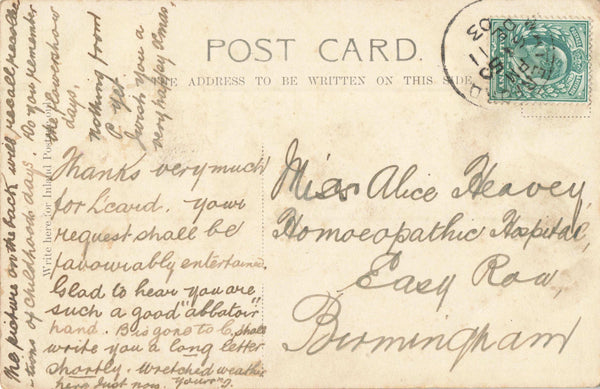 POST CARD.
THE ADDRESS TO BE WRITTEN ON THIS SIDE
Write here for Inland Postage only
Thanks very much
for L'card. Your
request shall be
favouriably entertained.
Glad to hear you are
such a good "abbatoir"
hand. B is gone to C, shall
write you a long letter
shortly. Wretched weather
here just now. Yours
The picture on the back will recall recollec
-tions of childhoods days. Do you remember
the flower show
days.
nothing from
C yet.
wish you a
very happy Xmas,
Miss Alice Heavey,
Homoeopathic Hospital,
Easy Row,
Birmingham